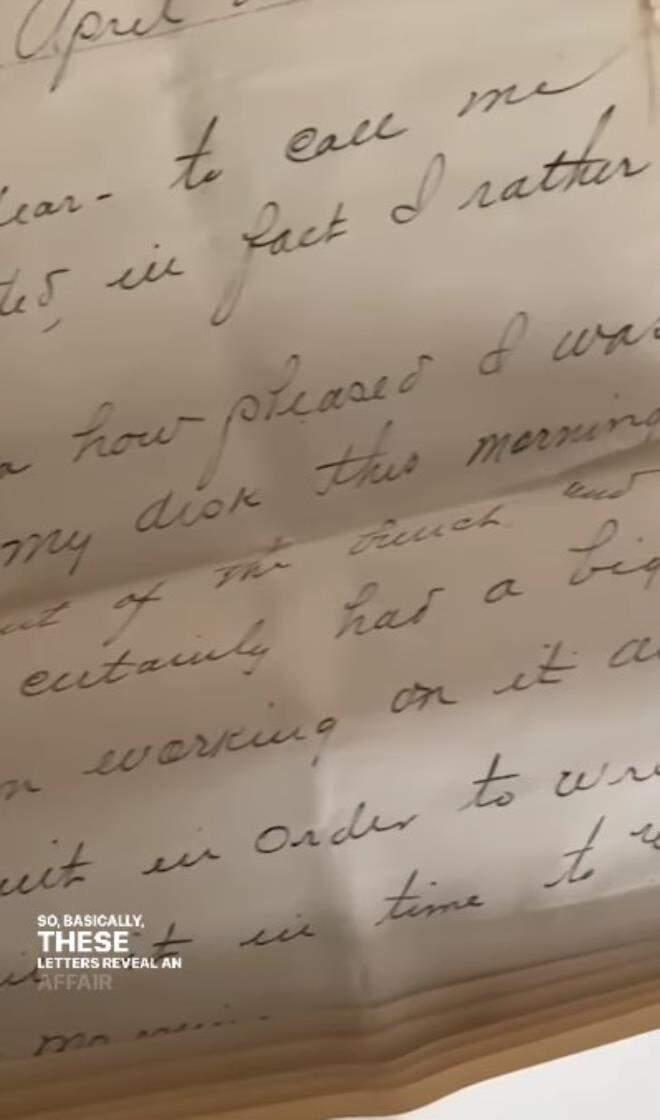 April
dear - to call me
ted, in fact I rather
how pleased I was
my disk this morning
out of the bunch and
certainly had a big
working on it
quit in order to
it in time to
SO, BASICALLY,
THESE
LETTERS REVEAL AN
AFFAIR